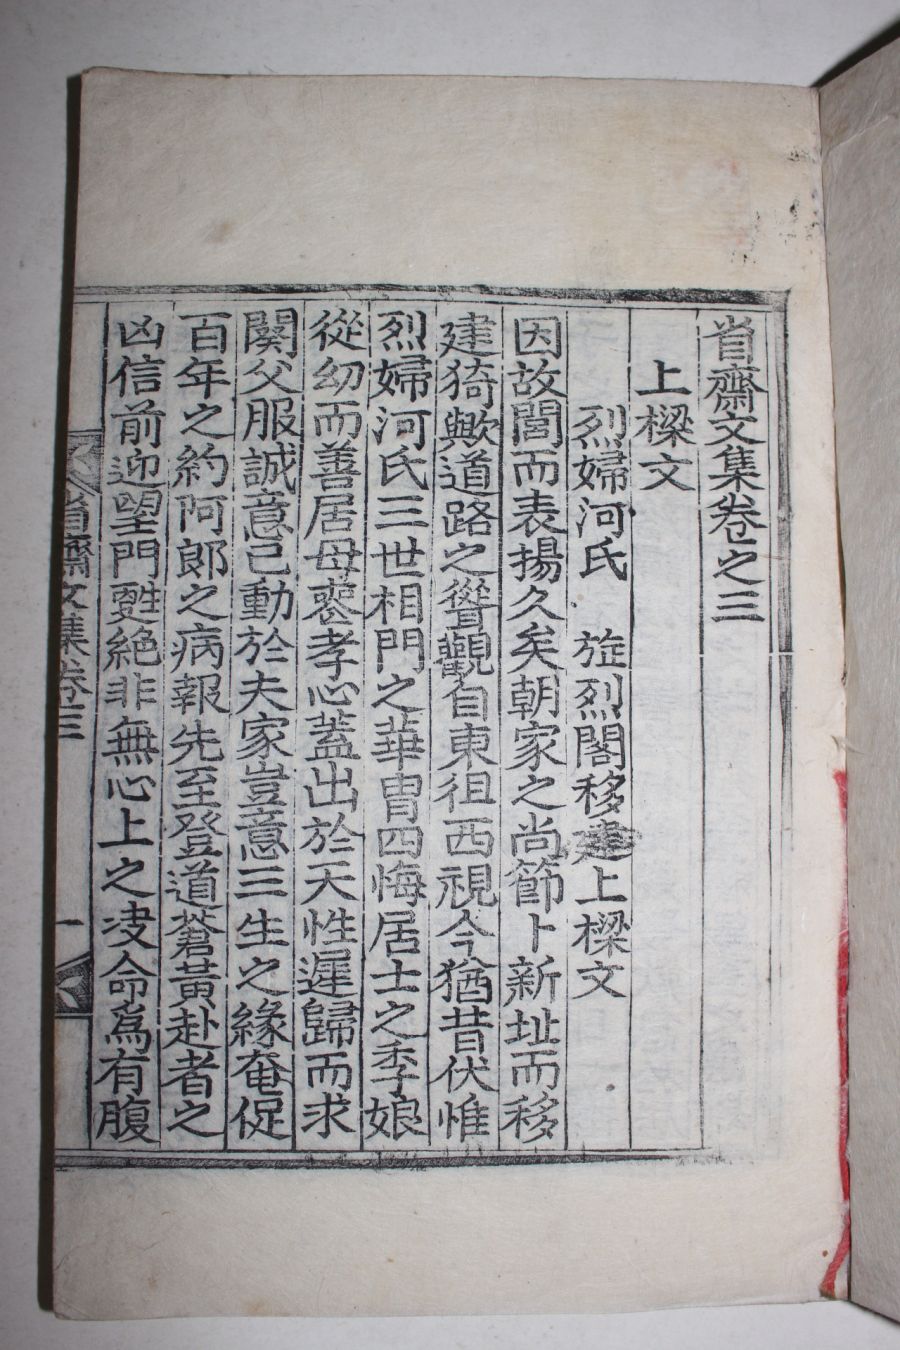 省齋文集卷之三
上樑文
烈婦河氏 旌烈閣移建上樑文
因故閭而表揚久矣朝家之尚節卜新址而移
建猗歟道路之聳觀自東徂西視今猶昔伏惟
烈婦河氏三世相門之華胄四悔居士之季娘
從幼而善居母喪孝心蓋出於天性遲歸而求
闋父服誠意已動於夫家豈意三生之緣奄促
百年之約阿郞之病報先至登道蒼黃赴者之
凶信前迎望門甦絶非無心上之决命爲有腹
省齋文集卷三
一